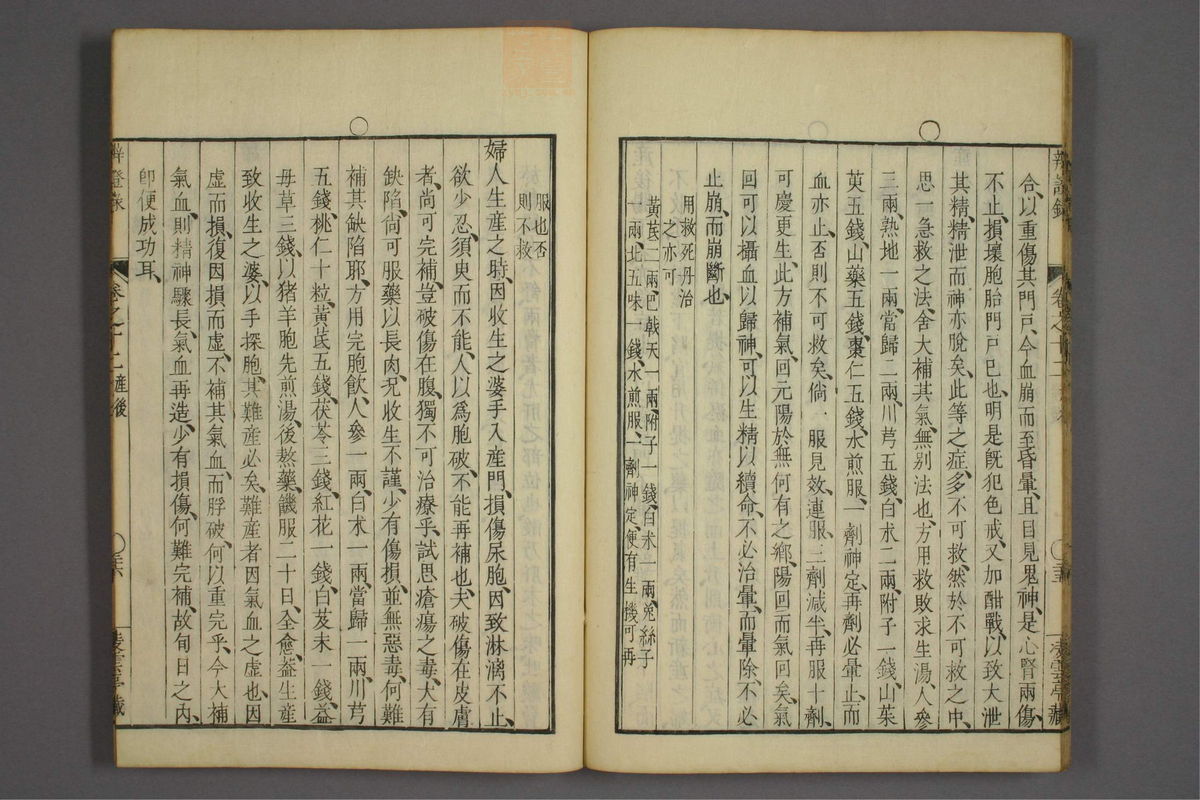 合以重傷其門戸、今血崩而至昏暈、且目見鬼神、是心腎兩傷、
不止、損壞胞胎門戸已也、明是既犯色戒、又加酣戰、以致大泄
其精、精泄而神亦脫矣、此等之症、多不可救、然於不可救之中、
思一急救之法、舍大補其氣、無别法也、方用救敗求生湯、人參
三兩、熟地一兩、當歸二兩、川芎五錢、白朮二兩、附子一錢、山茱
萸五錢、山藥五錢、棗仁五錢、水煎服、一劑神定、再劑必暈止、而
血亦止、否則不可救矣、倘一服見效、連服三劑、減半、再服十劑、
可慶更生、此方補氣、回元陽於無何有之鄉、陽回而氣回矣、氣
回可以攝血以歸神、可以生精以續命、不必治暈、而暈除、不必
止崩、而崩斷也、
用救死丹治
之亦可
黃茋二兩巴戟天一兩附子一錢白朮一兩菟絲子
一兩北五味一錢水煎服一劑神定便有生機可再
服也否
則不救
婦人生産之時、因收生之婆手入産門、損傷尿胞、因致淋漓不止、
欲少忍、須臾而不能、人以爲胞破、不能再補也、夫破傷在皮膚
者、尚可完補、豈破傷在腹、獨不可治療乎、試思瘡瘍之毒、大有
缺陷、尚可服藥以長肉、況收生不謹、少有傷損、並無惡毒、何難
補其缺陷耶、方用完胞飲、人參一兩、白朮一兩、當歸一兩、川芎
五錢、桃仁十粒、黃茋五錢、茯苓三錢、紅花一錢、白芨末一錢、益
毋草三錢、以猪羊胞先煎湯、後熬藥、饑服二十日、全愈、葢生産
致收生之婆、以手探胞、其難産必矣、難産者因氣血之虛也、因
虛而損、復因損而虛、不補其氣血、而脬破、何以重完乎、今大補
氣血、則精神驟長、氣血再造、少有損傷、何難完補、故旬日之内、
卽便成功耳、
卷之十二 産後